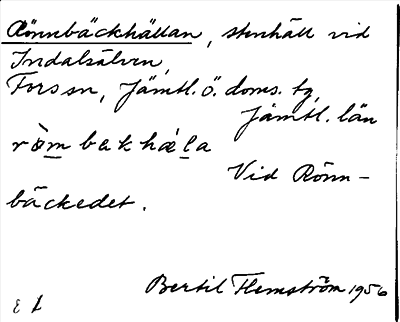 Rönnbäckhällan, stenhäll vid
Indalsälven,
Forssn, Jämtl. ö. doms. tg,
Jämtl. län
röm bakhæla
Vid Rönn-
bäckedet.
Bertil Flemström 1956